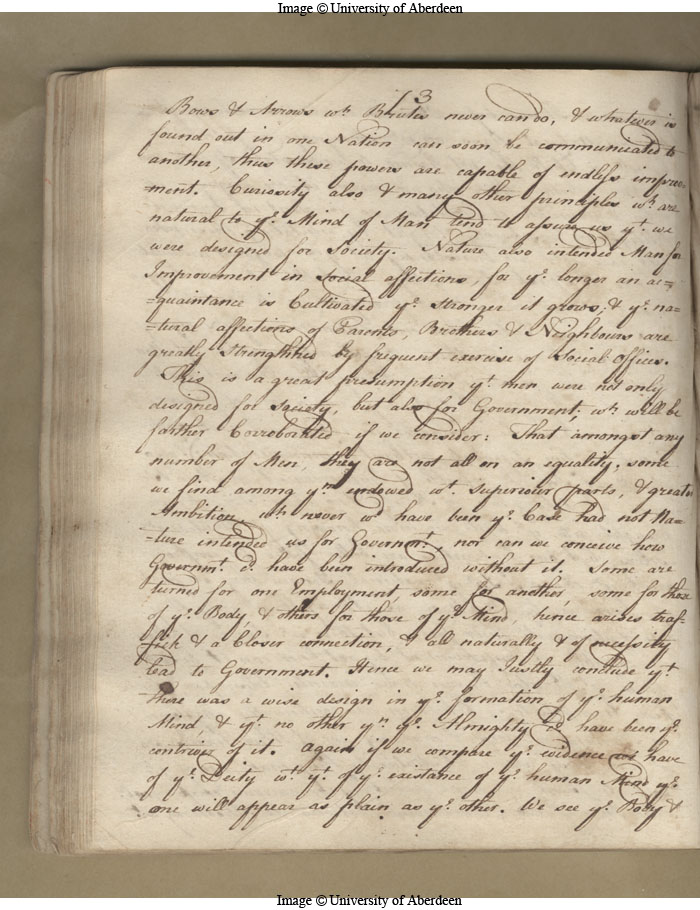 Image © University of Aberdeen
13
Bows & Arrows wh. Brutes never can do, & whatever is
found out in one Nation can soon be communicated to
another, thus these powers are capable of endless improve-
-ment. Curiosity also & many other principles wh. are
natural to ye. Mind of Man tend to assure us yt. we
were designed for Society. Nature also intended Man for
Improvement in Social affections, for ye. longer an ac=
=quaintance is Cultivated ye. stronger it grows, & ye. na=
=tural affections of Parents, Brothers & Neighbours are
greatly strengthned by frequent exercise of Social Offices.
This is a great presumption yt. men were not only
designed for society, but also for Government; wh. will be
farther Corroborated, if we consider: That amongst any
number of Men, they are not all on an equality, some
we find among ym. endowed wt. superiour parts, & greater
Ambition, wh. never wd. have been ye. Case had not Na=
=ture intended us for Governmt., nor can we conceive how
Governmt. cd. have been introduced without it. Some are
turned for one Employment, some for another, some for those
of ye. Body, & others for those of ye. Mind, hence arises traf-
fick & a Closer connection, & all naturally & of necessity
lead to Government. Hence we may Justly conclude yt.
there was a wise design in ye. formation of ye. human
Mind & yt. no other yn. ye. Almighty cd. have been ye.
contriver of it. Again if we compare ye. evidence we have
of ye. Deity wt. yt. of ye. existance of ye. human Mind ye.
one will appear as plain as ye. other. We see ye. Body &
Image © University of Aberdeen